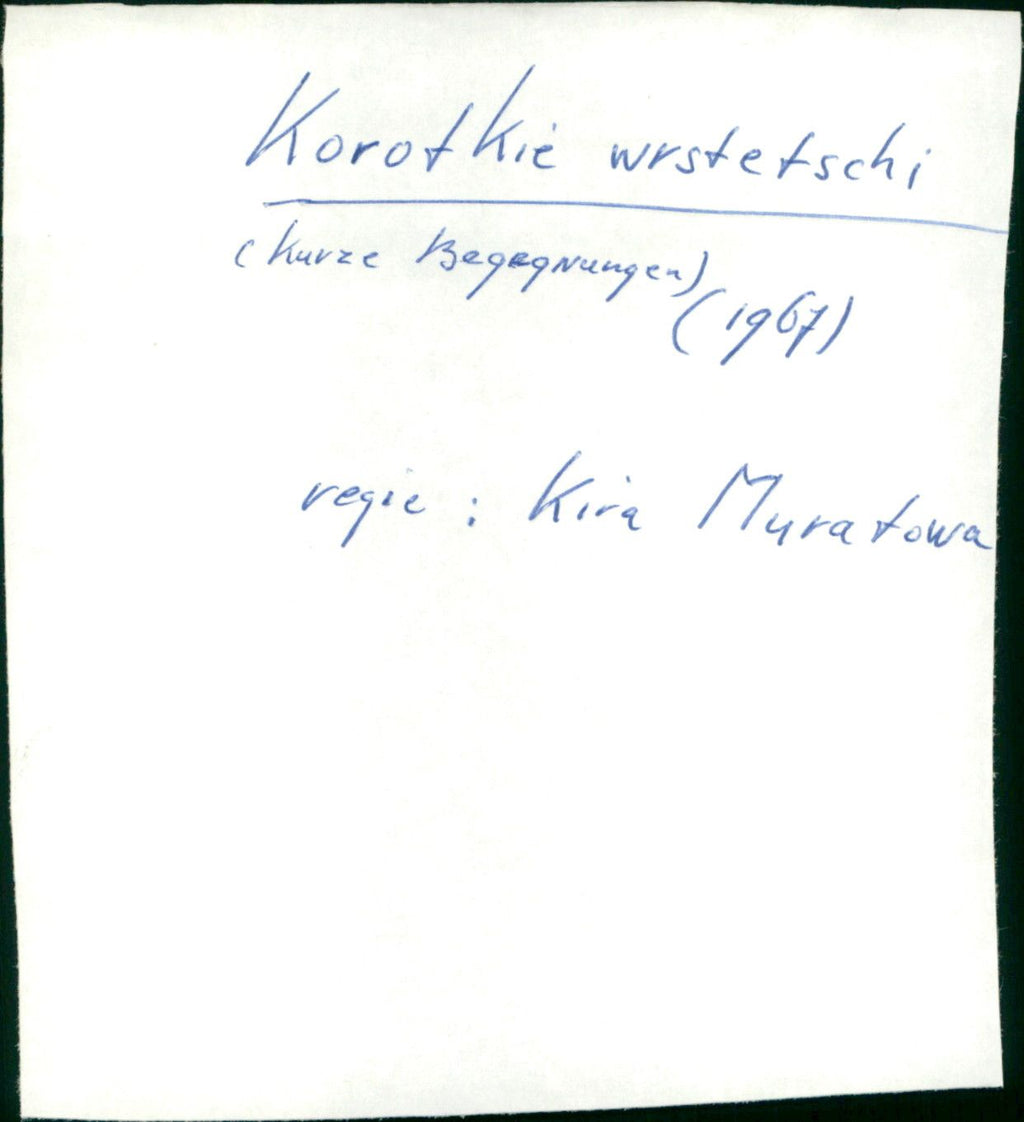 Korotkie wrstetschi
(Kurze Begegnungen)
(1967)
regie : Kira Muratowa